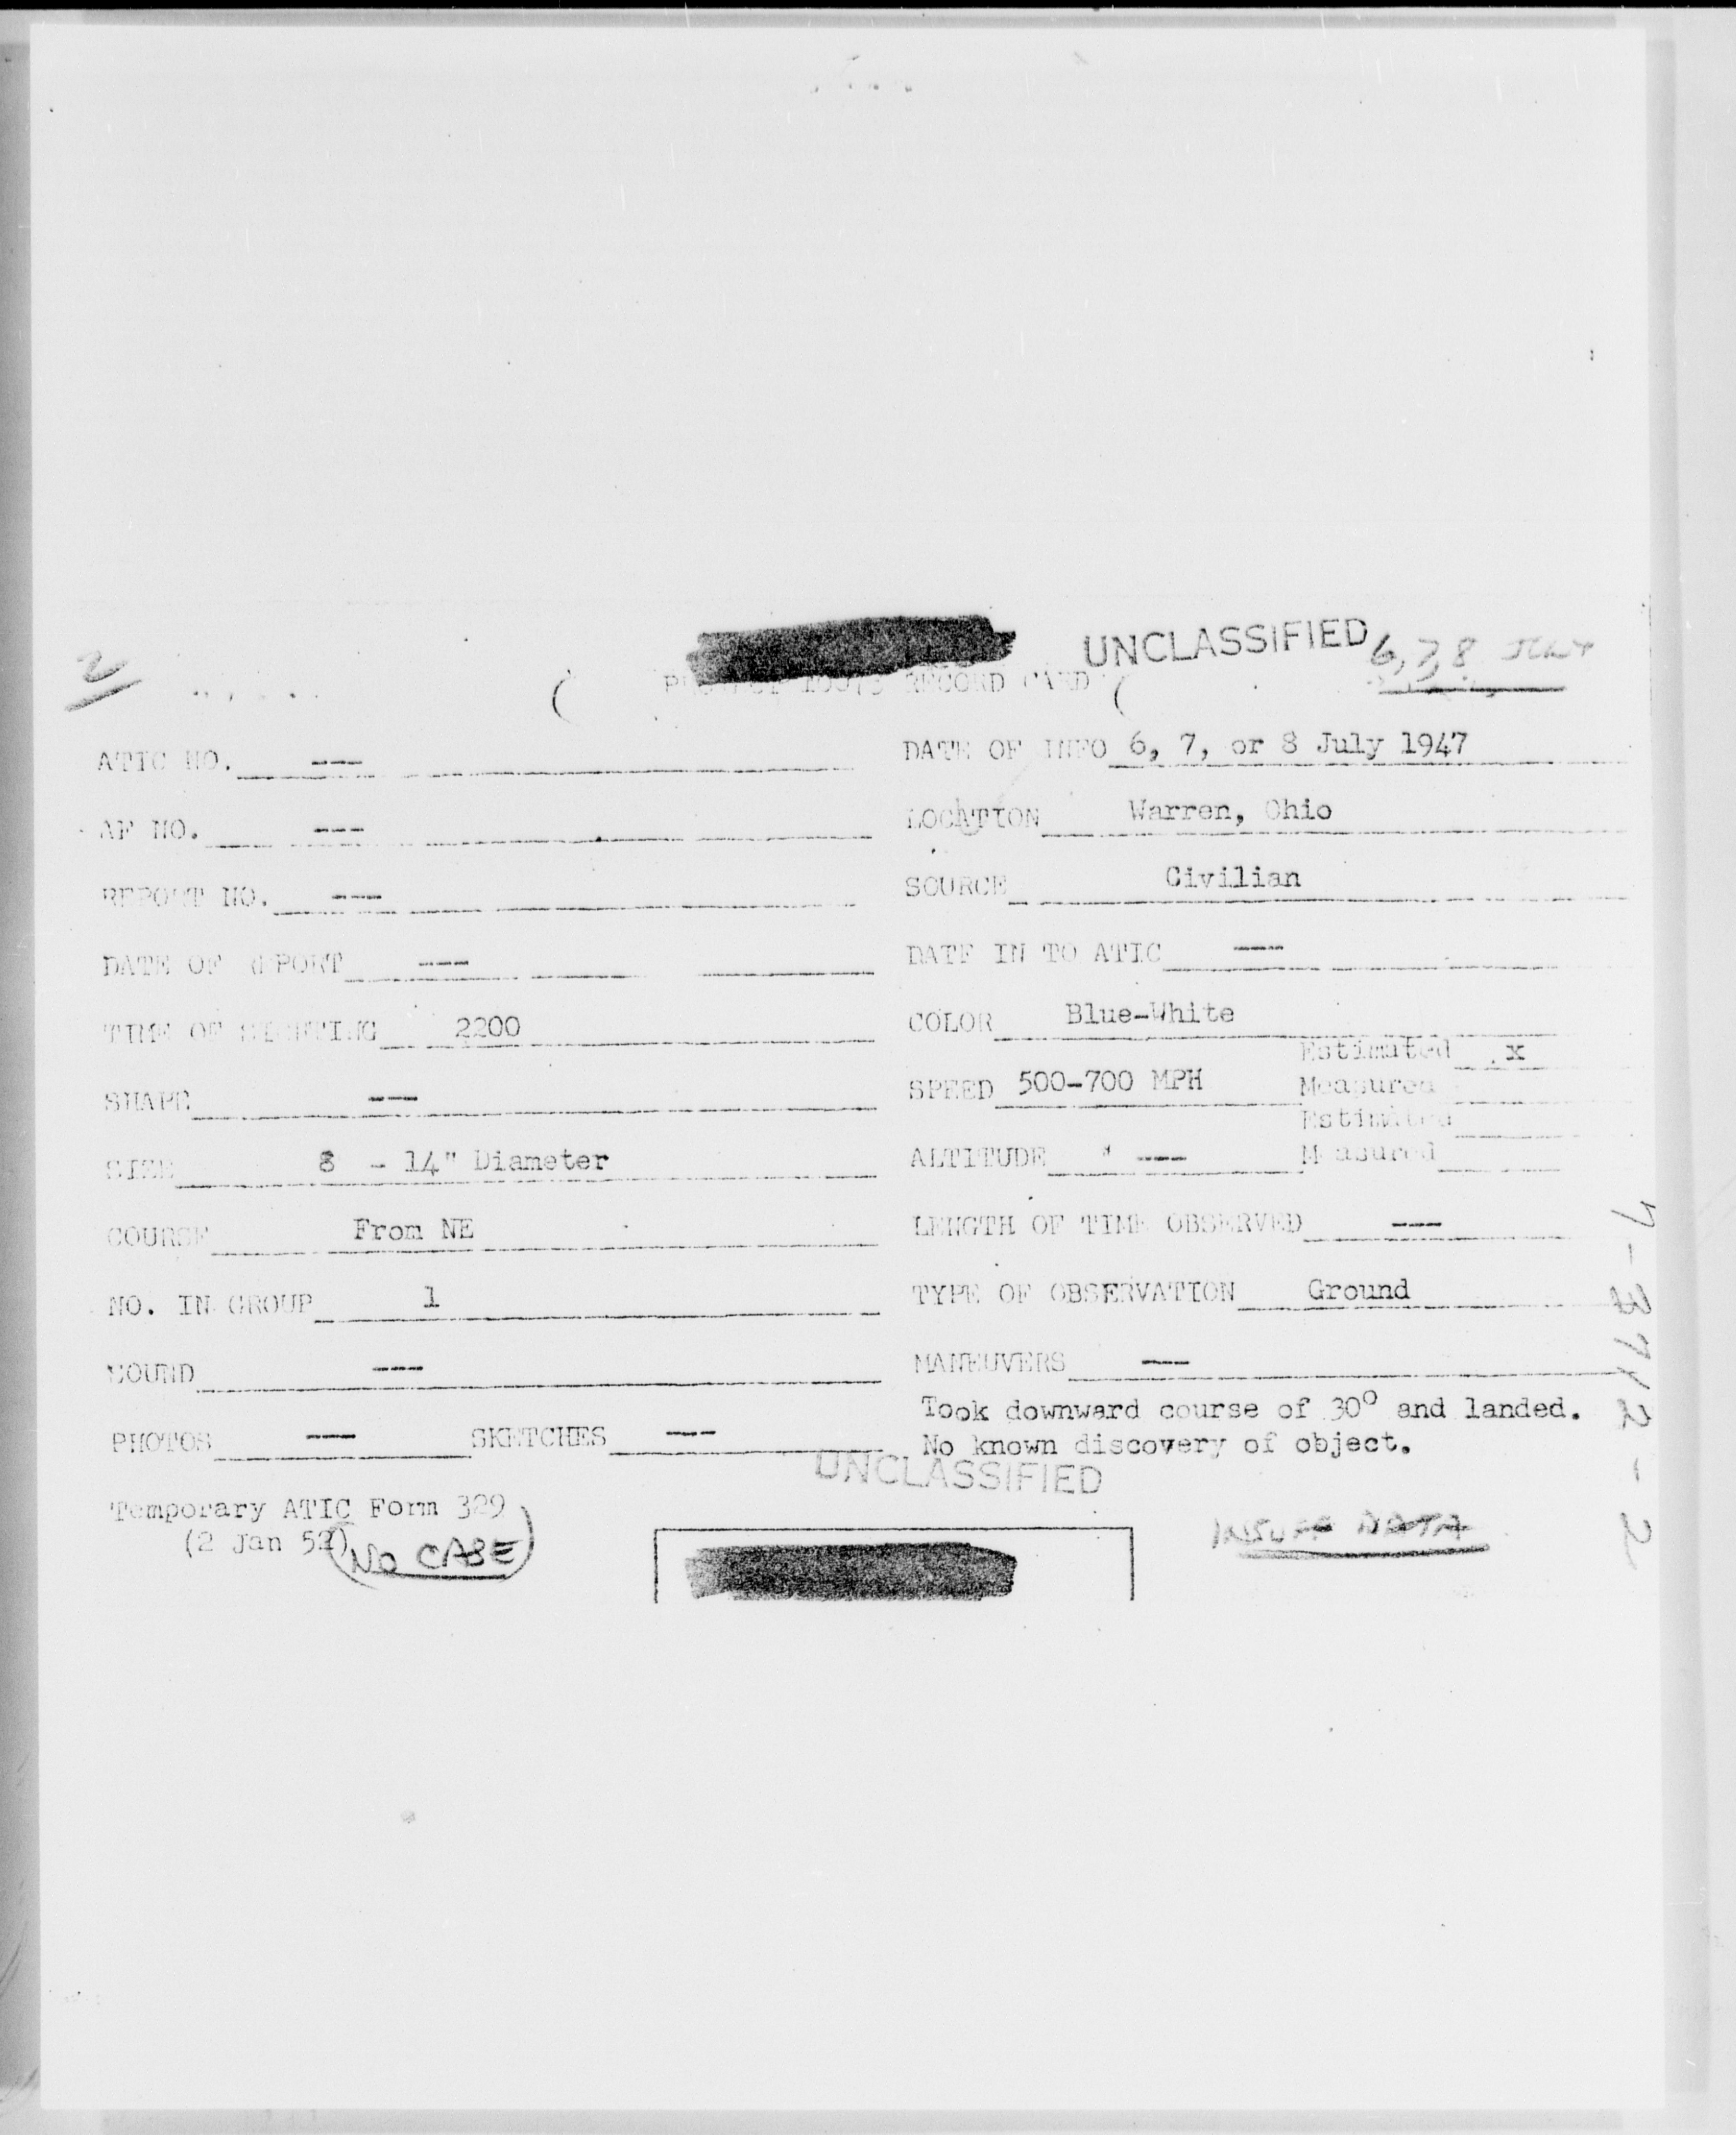 UNCLASSIFIED
6, 7, 8 JULY
2
RECORD CARD
ATIC NO. ---
DATE OF INFO 6, 7, or 8 July 1947
AF NO. ---
LOCATION Warren, Ohio
REPORT NO. ---
SOURCE Civilian
DATE OF REPORT ---
DATE IN TO ATIC ---
TIME OF SIGHTING 2200
COLOR Blue-White
Estimated x
SHAPE ---
SPEED 500-700 MPH Measured
Estimated
SIZE 8 - 14" Diameter
ALTITUDE --- Measured
COURSE From NE
LENGTH OF TIME OBSERVED ---
NO. IN GROUP 1
TYPE OF OBSERVATION Ground
SOUND ---
MANEUVERS ---
Took downward course of 30° and landed.
PHOTOS --- SKETCHES ---
No known discovery of object.
UNCLASSIFIED
Temporary ATIC Form 329
(2 Jan 52)
NO CASE
INSUFF DATA